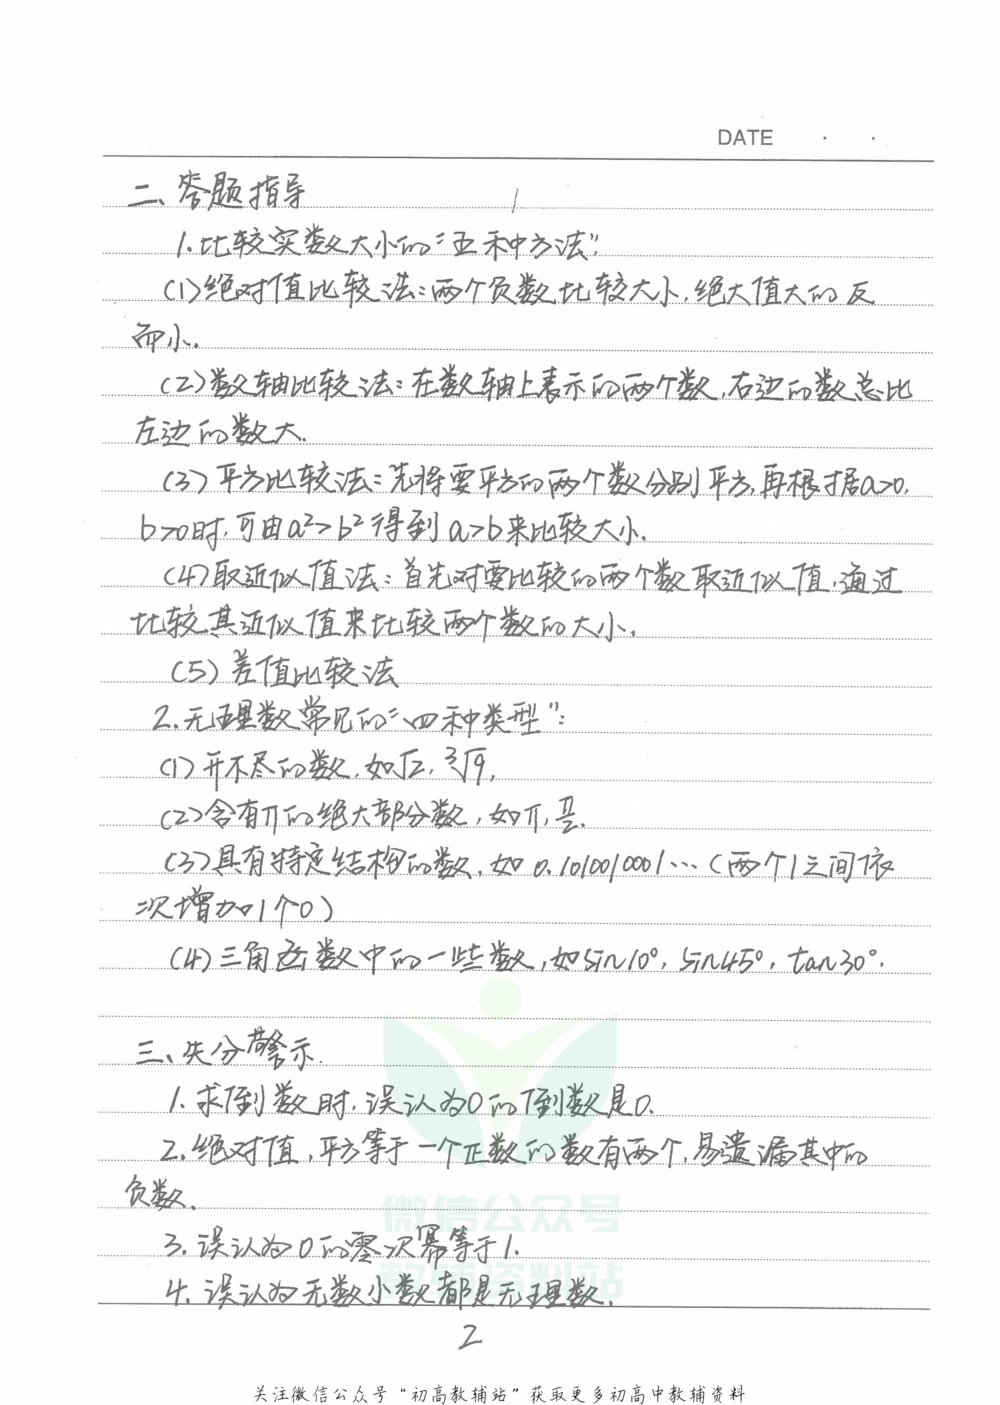 DATE · ·
二、答题指导
1.比较实数大小的“五种方法”:
(1)绝对值比较法:两个负数比较大小,绝大值大的反
而小.
(2)数轴比较法:在数轴上表示的两个数,右边的数总比
左边的数大.
(3)平方比较法:先将要平方的两个数分别平方,再根据a>0,
b>0时,可由a²>b²得到a>b来比较大小.
(4)取近似值法:首先对要比较的两个数取近似值,通过
比较其近似值来比较两个数的大小.
(5)差值比较法
2.无理数常见的“四种类型”:
(1)开不尽的数,如√2,³√9,
(2)含有π的绝大部分数,如π,
(3)具有特定结构的数,如0.1010010001…(两个1之间依
次增加1个0)
(4)三角函数中的一些数,如sin10°,sin45°,tan30°.
三、失分警示.
1.求倒数时,误认为0的倒数是0.
2.绝对值,平方等于一个正数的数有两个,易遗漏其中的
负数.
3.误认为0的零次幂等于1.
4.误认为无数小数都是无理数.
微信公众号
教师资料站
2
关注微信公众号“初高教辅站”获取更多初高中教辅资料